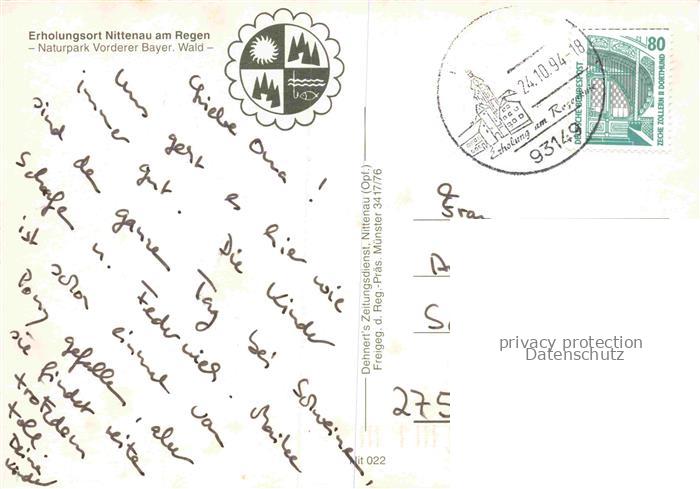 Erholungsort Nittenau am Regen
– Naturpark Vorderer Bayer. Wald –
Liebe Oma!
Uns geht es hier wie
immer gut. Die Kinder
sind den ganzen Tag bei Schweinen,
Schafen u. Federvieh.
ist schon einmal vom
Pony gefallen, aber
sie findet reiten
trotzdem
toll.
Deine
Kinder
Dehnert's Zeitungsdienst, Nittenau (Opf.)
Freigeg. d. Reg.-Präs. Münster 3417/76
Nit 022
24.10.94-18
Erholung am Regen
93149
80
DEUTSCHE BUNDESPOST
ZECHE ZOLLERN II DORTMUND
275
privacy protection
Datenschutz